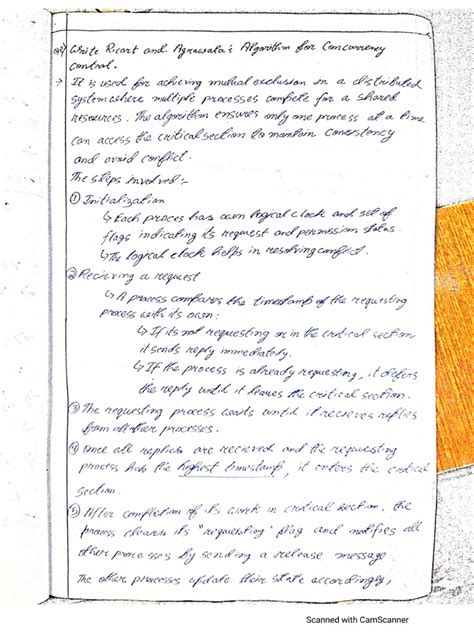 Q2) Write Ricart and Agrawala's Algorithm for Concurrency
Control.
→ It is used for achieving mutual exclusion in a distributed
system where multiple processes compete for a shared
resources. The algorithm ensures only one process at a time
can access the critical section to maintain consistency
and avoid conflict.
The steps involved :-
① Initialization
↳ Each process has own logical clock and set of
flags indicating its request and permission status
↳ The logical clock helps in resolving conflict.
② Recieving a request
↳ A process compares the timestamp of the requesting
process with its own:
↳ If its not requesting or in the critical section
it sends reply immediately.
↳ If the process is already requesting, it defers
the reply until it leaves the critical section.
③ The requesting process waits until it recieves replies
from all other processes.
④ Once all replies are recieved and the requesting
process has the highest timestamp, it enters the critical
section.
⑤ After completion of its work in critical section, the
process clears its "requesting" flag and notifies all
other processes by sending a release message.
The other processes update their state accordingly,
Scanned with CamScanner